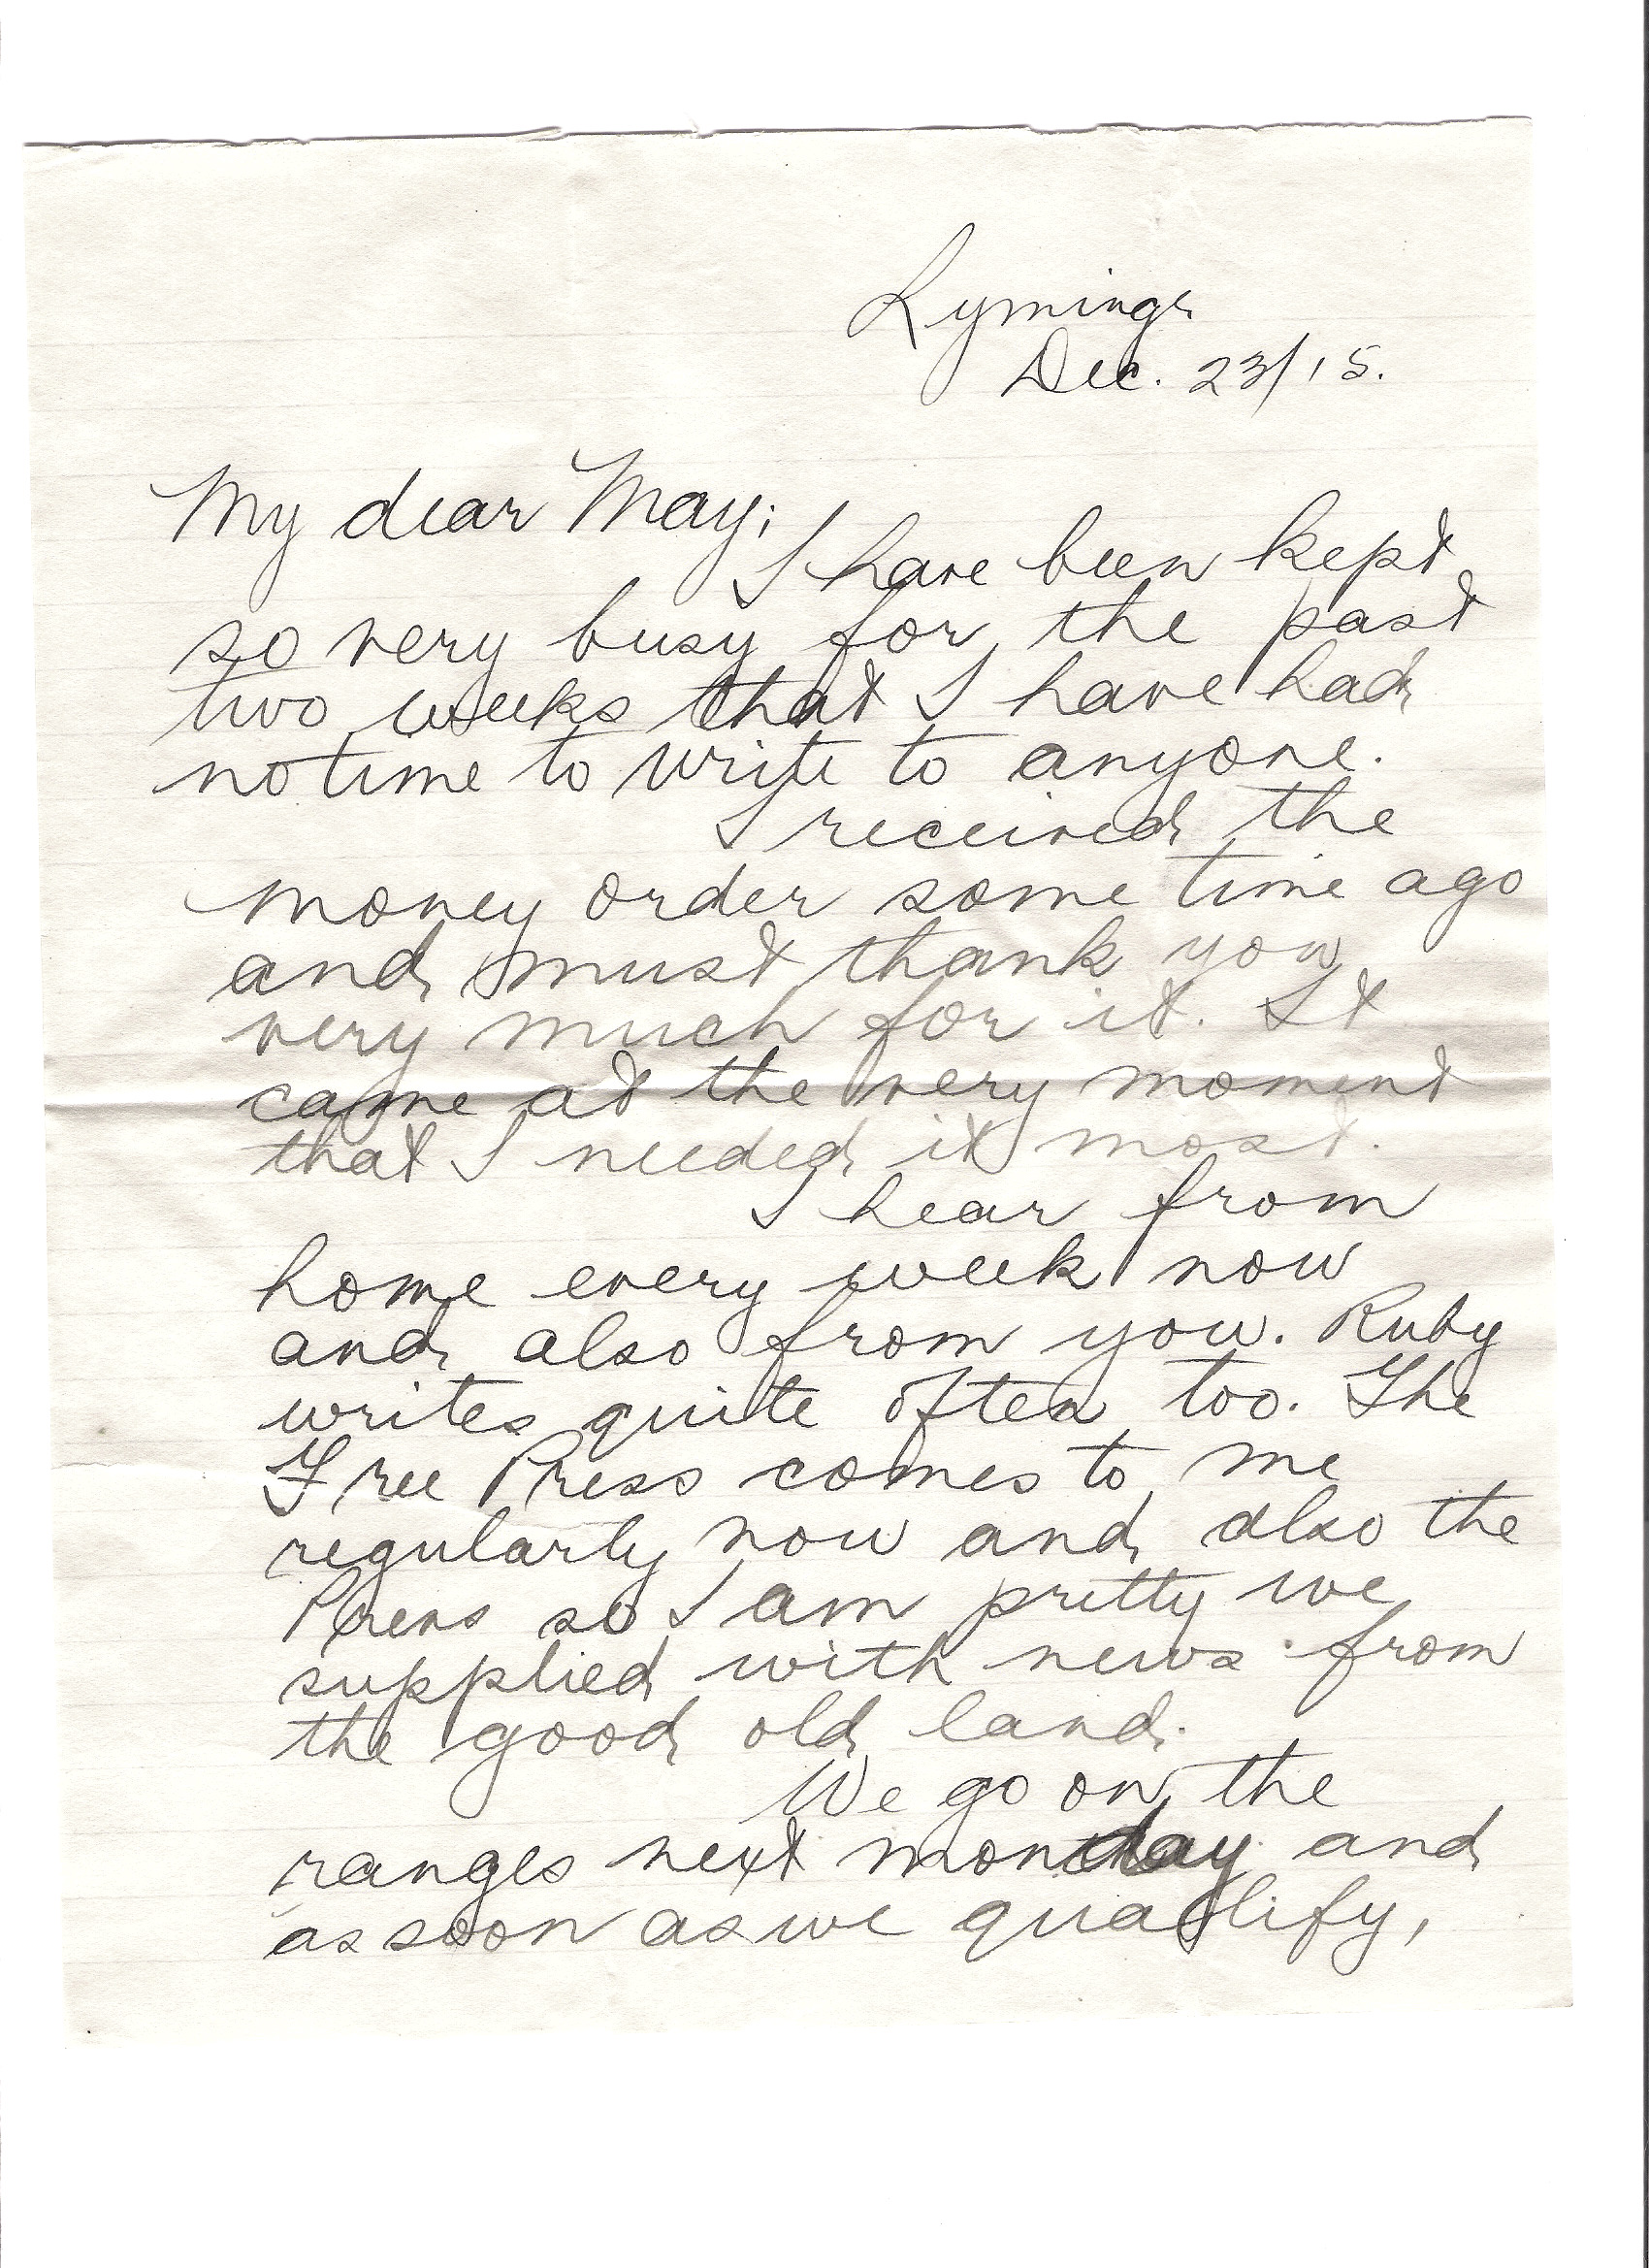 Lyminge
Dec. 23/15.
My dear May;
I have been kept
so very busy for the past
two weeks that I have had
no time to write to anyone.
I received the
money order some time ago
and must thank you
very much for it. It
came at the very moment
that I needed it most.
I hear from
home every week now
and also from you. Ruby
writes quite often too. The
Free Press comes to me
regularly now and also the
so I am pretty we
supplied with news from
the good old land.
We go on the
ranges next monday and
as soon as we qualify,